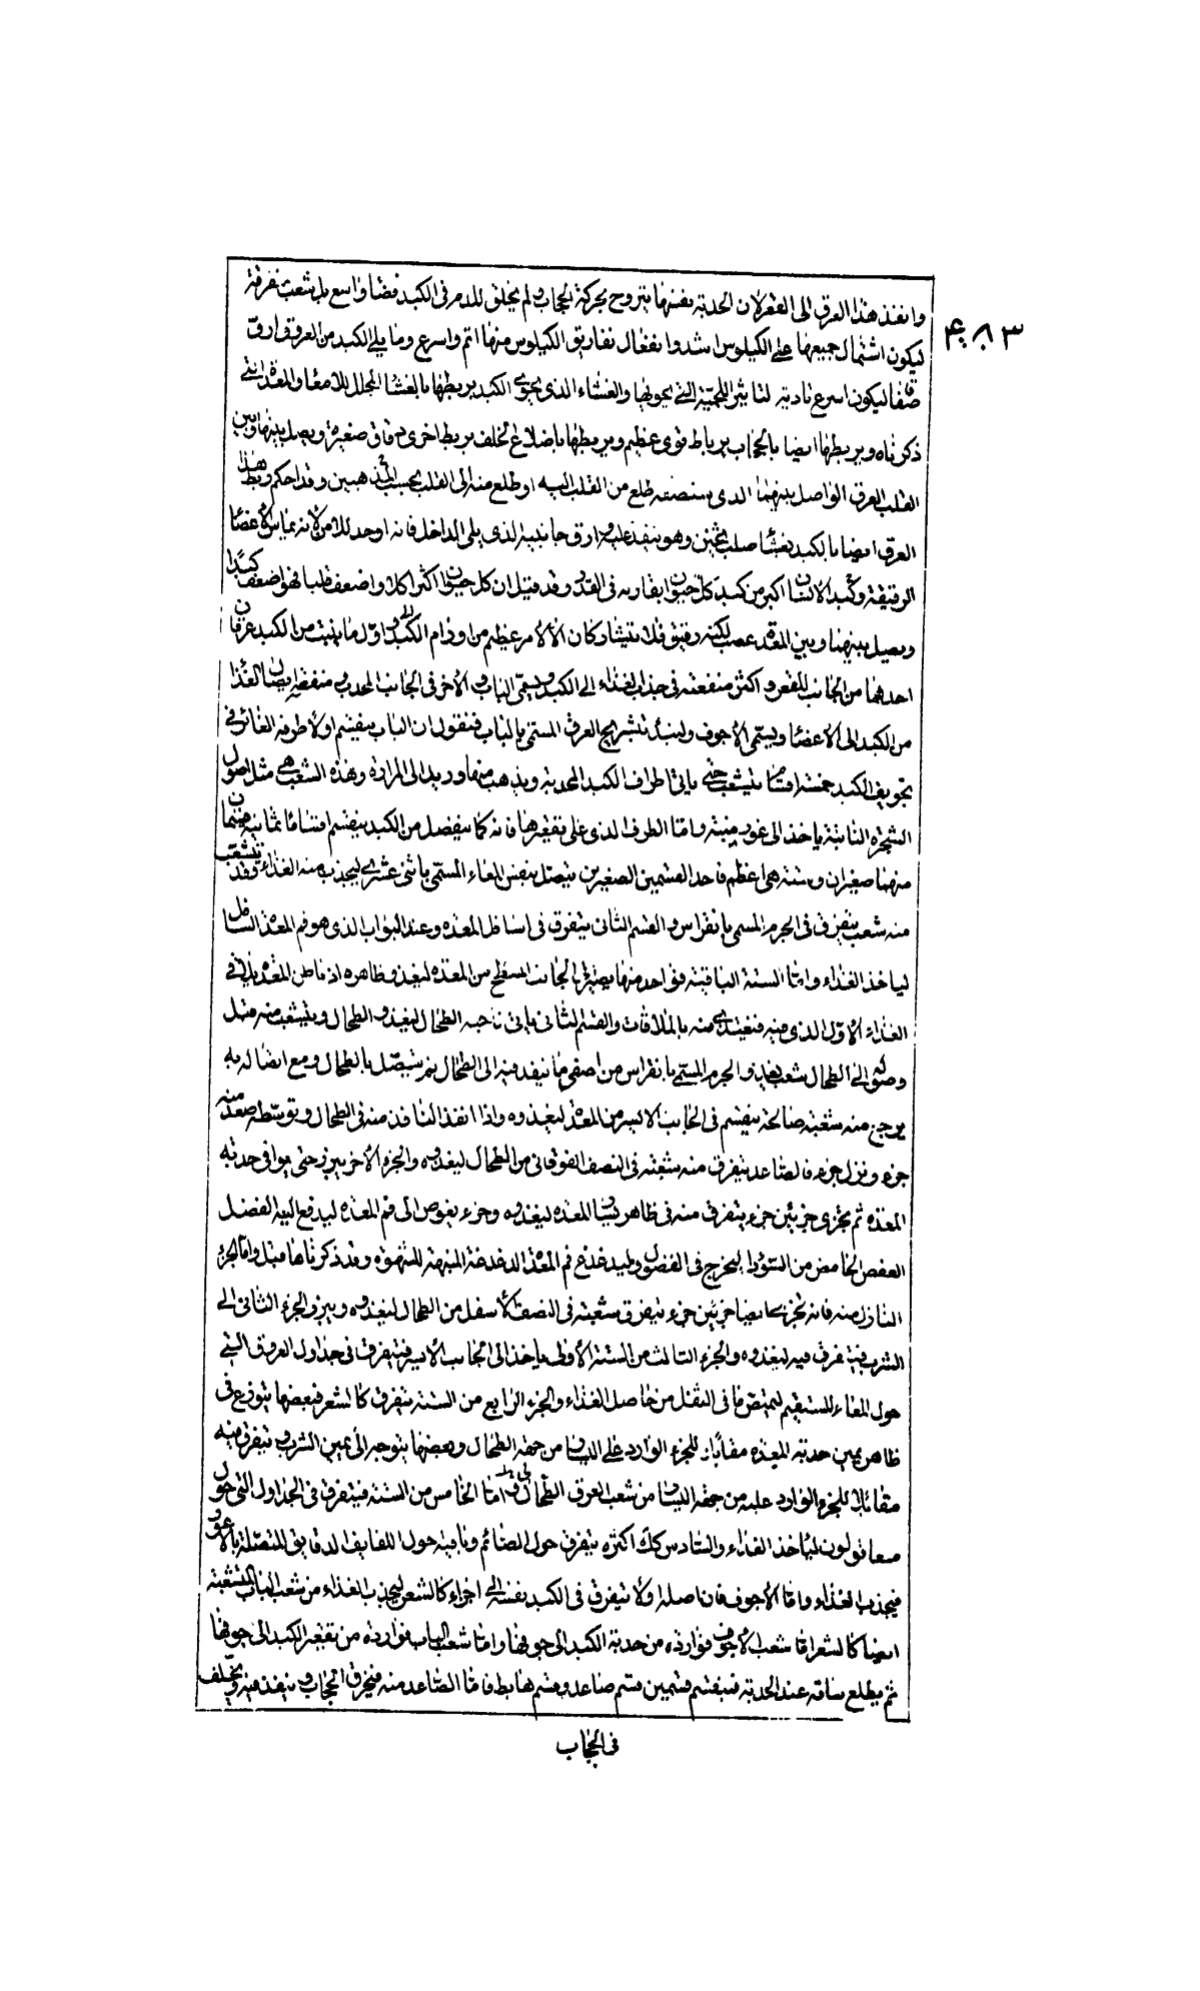 وانفذ هذا العرق الى القعر لان الحدبة نفسها تتروح بحركة الحجاب ولم يخلق للدم فى الكبد فضاء واسع بل شعب متفرقة
۴۰۸۳
ليكون اشتمال جميعها على الكيلوس اشد وانفعال تفاريق الكيلوس منها اتم واسرع وما يلى الكبد من العروق ارق
صفاقا ليكون اسرع تادية لتاثير اللحمية التى يحويها والغشاء الذى يحوى الكبد يربطها بالغشاء المجلل للامعاء والمعدة الذى
ذكرناه ويربطها ايضا بالحجاب برباط قوى عظيم ويربطها باضلاع الخلف بربط اخرى دقاق صغيرة ويصل بينها وبين
القلب العرق الواصل بينهما الذى يستصغر طلع من القلب اليه او طلع منه الى القلب بحسب المذهبين وقد احكم ربط هذا
العرق ايضا بالكبد بغشاء صلب ثخين وهو ينفذ عليه وارق جانبيه الذى يلى الداخل فانه اوجد للامن لانه يماس الاعضاء
الرقيقة وكبد الانسان اكبر من كبد كل حيوان يقاربه فى القدر وقد قيل ان كل حيوان اكثر اكلا واضعف قلبا فهو اضعف كبدا
ويصل بينها وبين المعدة عصب لكنه دقيق فلا يتشاركان الا لامر عظيم من اورام الكبد واول ما ينبت من الكبد عرقان
احدهما من الجانب المقعر واكثر منفعته فى جذب الغذاء الى الكبد ويسمى الباب والاخر فى الجانب المحدب ومنفعته ايصال الغذاء
من الكبد الى الاعضاء ويسمى الاجوف ولنبدأ بتشريح العرق المسمى بالباب فنقول ان الباب ينقسم اولا طرفه الغائر فى
تجويف الكبد خمسة اقسام يتشعب حتى ياتى اطراف الكبد المحدبة ويذهب منها وريد الى المرارة وهذه الشعب هى مثل اصول
الشجرة النابتة ياخذ الى غور منبته واما الطرف الذى على تقعيرها فانه كما ينفصل من الكبد ينقسم اقساما ثمانية قسمان
منهما صغيران وستة هى اعظم فاحد القسمين الصغيرين يتصل بنفس المعاء المسمى باثنى عشرى ليجذب منه الغذاء وقد يتشعب
منه شعب يتفرق فى الجرم المسمى بانقراس والقسم الثانى يتفرق فى اسافل المعدة وعند البواب الذى هو فم المعدة السافل
لياخذ الغذاء واما الستة الباقية فواحد منها يصير الى الجانب المسطح من المعدة ليغذو ظاهره اذ باطن المعدة يلاقى
الغذاء الاول الذى فيه فيغتذى منه بالملاقات والقسم الثانى ياتى ناحية الطحال ليغذو الطحال ويتشعب منه قبل
وصوله الى الطحال شعب يغذو الجرم المسمى بانقراس من اصفى ما ينفذ فيه الى الطحال ثم يتصل بالطحال ومع اتصاله به
يرجع منه شعبة صالحة ينقسم فى الجانب الايسر من المعدة ليغذوه واذا انفذ النافذ منه فى الطحال وتوسطه صعد منه
جزء ونزل جزء فالصاعد يتفرق منه شعبة فى النصف الفوقانى من الطحال ليغذوه والجزء الاخر يبرز حتى يوافى حدبة
المعدة ثم يتجزى جزئين جزء يتفرق منه فى ظاهر يسار المعدة ليغذوه وجزء يغوص الى فم المعدة ليدفع اليه الفضل
العفص الحامض من السوداء ليخرج فى الفضول وليدغدغ فم المعدة الدغدغة المنبهة للشهوة وقد ذكرناها قبل واما الجزء
النازل منه فانه يتجزى ايضا جزئين جزء يتفرق شعبه فى النصف الاسفل من الطحال ليغذوه ويبرز الجزء الثانى الى
الثرب فيتفرق فيه ليغذوه والجزء الثالث من الستة الاول ياخذ الى الجانب الايسر فيتفرق فى جداول العروق التى
حول المعاء المستقيم ليمتص ما فى الثقل من حاصل الغذاء والجزء الرابع من الستة يتفرق كالشعر فبعضها يتوزع فى
ظاهر يمين حدبة المعدة مقابلا للجزء الوارد على اليسار من جهة الطحال وبعضها يتوجه الى يمين الثرب ويتفرق فيه
مقابلا للجزء الوارد عليه من جهة اليسار من شعب العرق الطحالى واما الخامس من الستة فيتفرق فى الجداول التى حول
معا قولون لياخذ الغذاء والسادس كك اكثره يتفرق حول الصائم وباقيه حول اللفايف الدقايق المتصلة بالاعور
فيجذب الغذاء واما الاجوف فان اصله اولا يتفرق فى الكبد نفسه الى اجزاء كالشعر ليجذب الغذاء من شعب الباب المتشعبة
ايضا كالشعر اما شعب الاجوف فواردة من حدبة الكبد الى جوفها واما شعب الباب فواردة من تقعير الكبد الى جوفها
ثم يطلع ساقه عند الحدبة فينقسم قسمين قسم صاعد وقسم هابط فاما الصاعد منه فيخرق الحجاب وينفذ فيه ويخلف
فى الحجاب